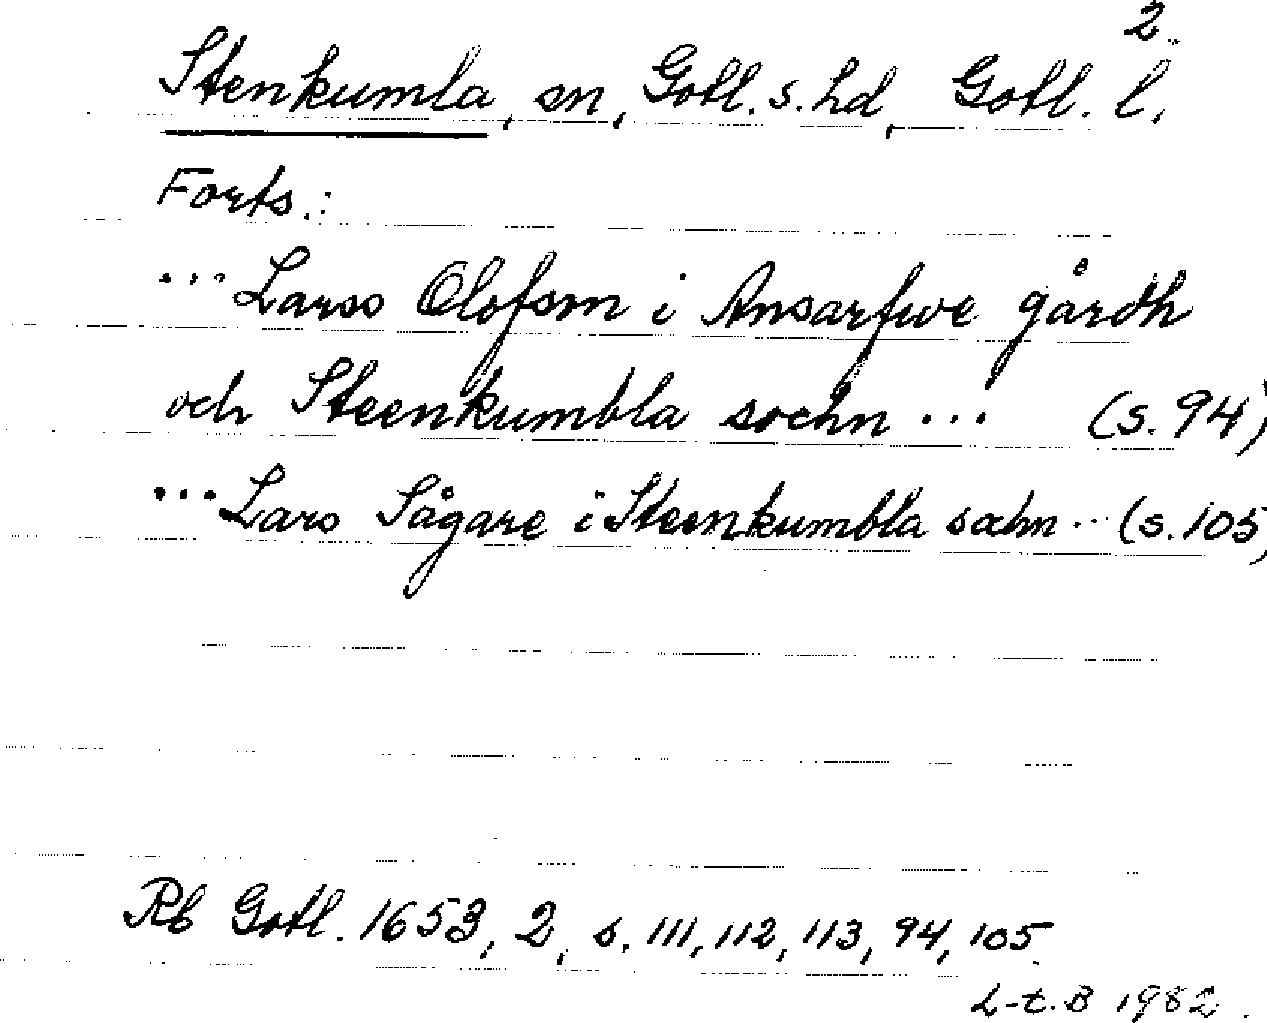 2.
Stenkumla, sn, Gotl. s. hd, Gotl. l.
Forts.:
... Larss Olofsm i Ansarfwe gårdh
och Steenkumbla sochn ... (s. 94)
... Lars Sågare i Steenkumbla sochn ... (s. 105)
Rb Gotl. 1653, 2, s. 111, 112, 113, 94, 105.
L-t. B 1982.